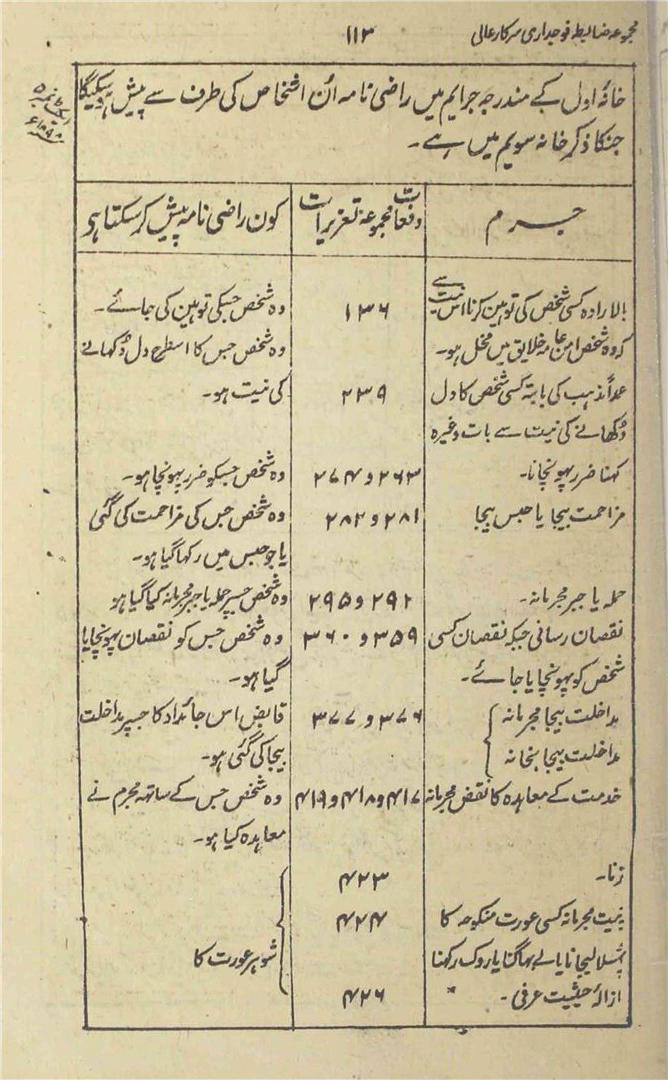 مجموعہ ضابطہ فوجداری سرکار عالی
۱۱۳
خانۂ اول کے مندرجہ جرایم میں راضی نامہ اُن اشخاص کی طرف سے پیش ہوسکیگا
جنکا ذکر خانہ سویم میں ہے۔
جرم
دفعات مجموعہ تعزیرات
کون راضی نامہ پیش کرسکتا ہی
بالارادہ کسی شخص کی توہین کرنا اس نیت سے
۱۳۶
وہ شخص جسکی توہین کی جائے۔
کہ وہ شخص امن عامہ خلایق میں مخل ہو۔
وہ شخص جس کا اسطرح دل دُکھانے
عمداً مذہب کی بابتہ کسی شخص کا دل
۲۳۹
کی نیت ہو۔
دُکھانے کی نیت سے بات وغیرہ
کہنا ضرر پہونچانا۔
۲۶۳ و ۲۶۴
وہ شخص جسکو ضرر پہونچا ہو۔
مزاحمت بیجا یا حبس بیجا
۲۸۱ و ۲۸۲
وہ شخص جس کی مزاحمت کی گئی
یا جو حبس میں رکھا گیا ہو۔
حملہ یا جبر مجرمانہ۔
۲۹۲ و ۲۹۵
وہ شخص جسپر حملہ یا جبر مجرمانہ کیا گیا ہو
نقصان رسانی جبکہ نقصان کسی
۳۵۹ و ۳۶۰
وہ شخص جس کو نقصان پہونچایا
شخص کو پہونچایا جائے۔
گیا ہو۔
مداخلت بیجا مجرمانہ
۳۷۶ و ۳۷۷
قابض اس جائداد کا جسپر مداخلت
مداخلت بیجا بخانہ
بیجا کی گئی ہو۔
خدمت کے معاہدہ کا نقض مجرمانہ
۴۱۷ و ۴۱۸ و ۴۱۹
وہ شخص جس کے ساتھ مجرم نے
معاہدہ کیا ہو۔
زنا۔
۴۲۳
بہ نیت مجرمانہ کسی عورت منکوحہ کا
۴۲۴
پُھسلا لیجانا یا لے بھاگنا یا روک رکھنا
شوہر عورت کا
ازالۂ حیثیت عرفی۔
۴۲۶